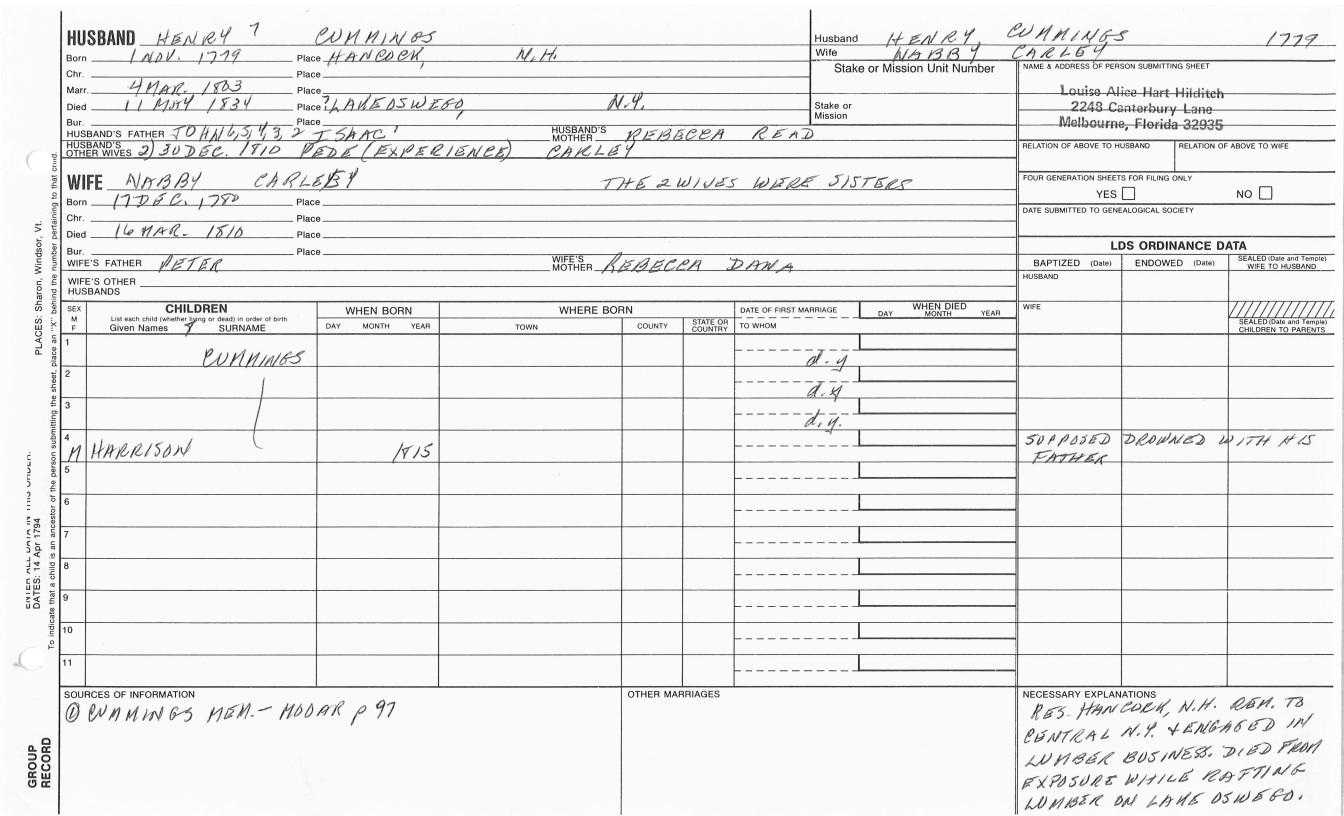 HUSBAND HENRY 7 CUMMINGS
Born 1 NOV. 1779 Place HANCOCK, N.H.
Chr. Place
Marr. 4 MAR. 1803 Place
Died 11 MAY 1834 Place ? LAKE OSWEGO, N.Y.
Bur. Place
HUSBAND'S FATHER JOHN 6, 5, 4, 3, 2 ISAAC 1 HUSBAND'S MOTHER REBECCA READ
HUSBAND'S OTHER WIVES 2) 30 DEC. 1810 PEDE (EXPERIENCE) CARLEY
WIFE NABBY CARLEY THE 2 WIVES WERE SISTERS
Born 17 DEC. 1780 Place
Chr. Place
Died 16 MAR. 1810 Place
Bur. Place
WIFE'S FATHER PETER WIFE'S MOTHER REBECCA DANA
WIFE'S OTHER HUSBANDS
Husband HENRY CUMMINGS 1779
Wife NABBY CARLEY
Stake or Mission Unit Number
Stake or Mission
NAME & ADDRESS OF PERSON SUBMITTING SHEET
Louise Alice Hart Hilditch
2248 Canterbury Lane
Melbourne, Florida 32935
RELATION OF ABOVE TO HUSBAND RELATION OF ABOVE TO WIFE
FOUR GENERATION SHEETS FOR FILING ONLY
YES NO
DATE SUBMITTED TO GENEALOGICAL SOCIETY
LDS ORDINANCE DATA
BAPTIZED (Date) ENDOWED (Date) SEALED (Date and Temple) WIFE TO HUSBAND
HUSBAND
WIFE
SEALED (Date and Temple) CHILDREN TO PARENTS
SEX M F
CHILDREN
List each child (whether living or dead) in order of birth
Given Names 8 SURNAME
WHEN BORN
DAY MONTH YEAR
WHERE BORN
TOWN COUNTY STATE OR COUNTRY
DATE OF FIRST MARRIAGE
TO WHOM
WHEN DIED
DAY MONTH YEAR
1 CUMMINGS d. y
2 d. y
3 d. y.
4 M HARRISON 1815 SUPPOSED DROWNED WITH HIS
FATHER
5
6
7
8
9
10
11
SOURCES OF INFORMATION
① CUMMINGS MEM. - MOOAR p 97
OTHER MARRIAGES
NECESSARY EXPLANATIONS
RES. HANCOCK, N.H. REM. TO
CENTRAL N.Y. & ENGAGED IN
LUMBER BUSINESS. DIED FROM
EXPOSURE WHILE RAFTING
LUMBER ON LAKE OSWEGO.
PLACES: Sharon, Windsor, Vt.
ENTER ALL DATA IN THIS ORDER:
DATES: 14 Apr 1794
To indicate that a child is an ancestor of the person submitting the sheet, place an "X" behind the number pertaining to that child.
GROUP
RECORD